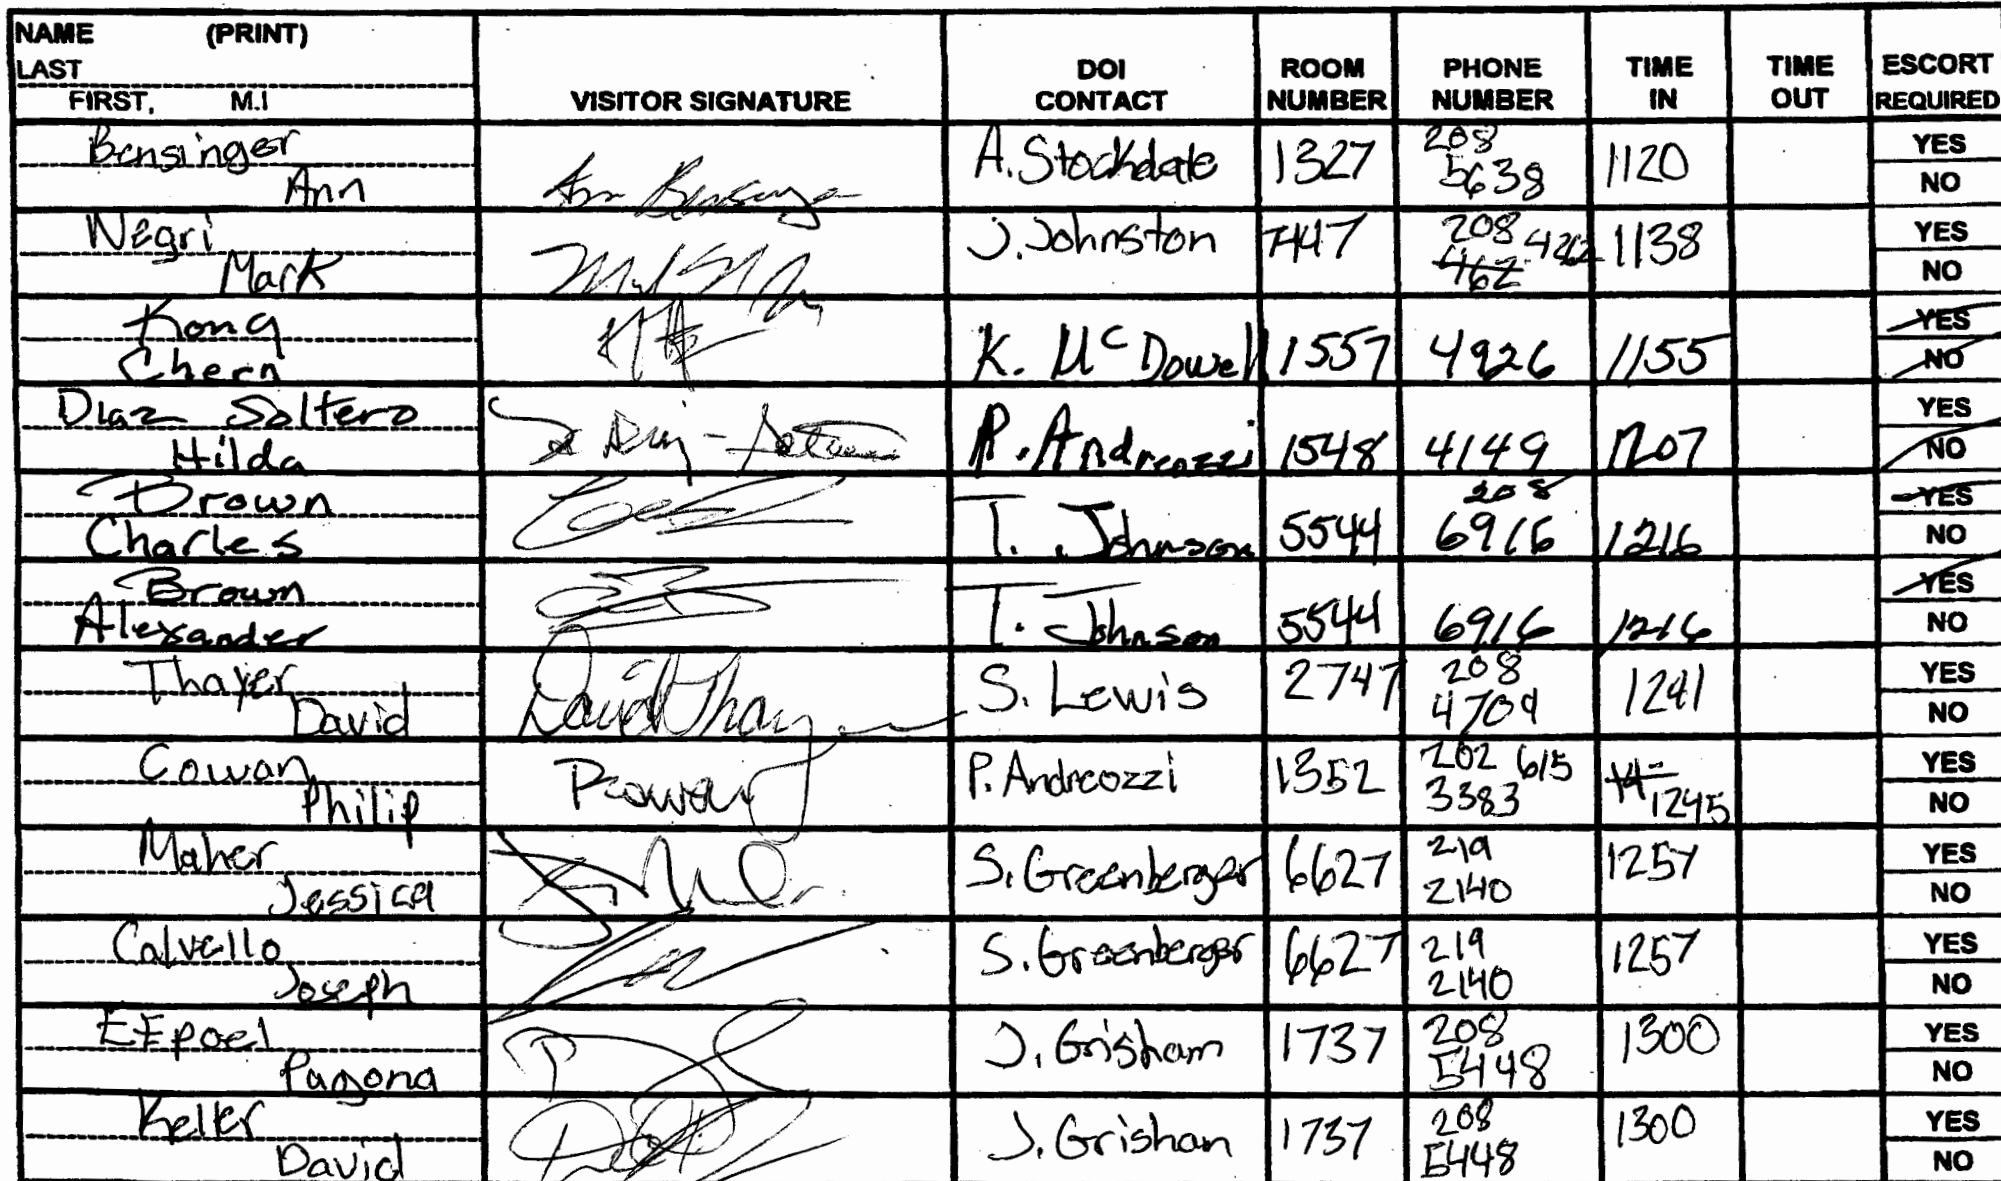 NAME (PRINT)
LAST
FIRST, M.I
VISITOR SIGNATURE
DOI
CONTACT
ROOM
NUMBER
PHONE
NUMBER
TIME
IN
TIME
OUT
ESCORT
REQUIRED
Bensinger
Ann
Ann Bensinger
A. Stockdale
1327
208
5638
1120
YES
NO
Negri
Mark
J. Johnston
7447
208
462 4262
1138
YES
NO
Kong
Chern
K. McDowell
1557
4926
1155
YES
NO
Diaz Soltero
Hilda
P. Andreozzi
1548
4149
1207
YES
NO
Brown
Charles
T. Johnson
5544
208
6916
1216
YES
NO
Brown
Alexander
T. Johnson
5544
6916
1216
YES
NO
Thayer
David
David Thayer
S. Lewis
2747
208
4709
1241
YES
NO
Cowan
Philip
PCowan
P. Andreozzi
1352
202 615
3383
1245
YES
NO
Maher
Jessica
S. Greenberger
6627
219
2140
1257
YES
NO
Calvello
Joseph
S. Greenberger
6627
219
2140
1257
YES
NO
EFpoel
Pagona
J. Grisham
1737
208
5448
1300
YES
NO
Keller
David
J. Grishan
1737
208
5448
1300
YES
NO